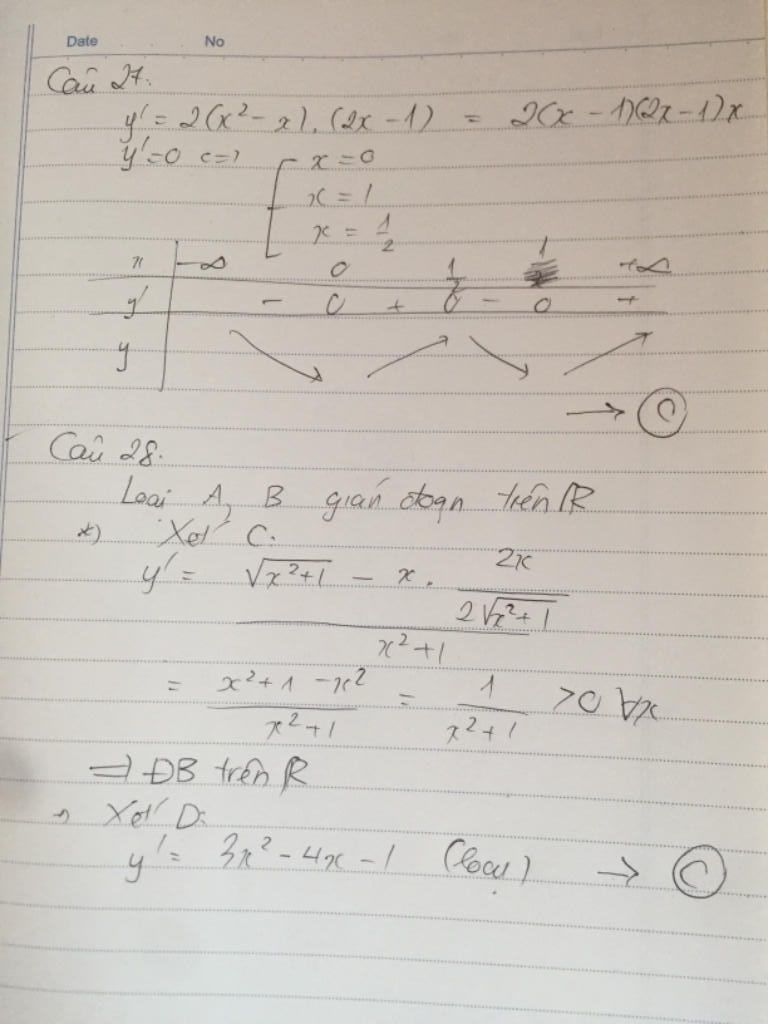 Date No
Câu 27.
y' = 2(x² - x).(2x - 1) = 2(x - 1)(2x - 1)x
y' = 0 <=> [ x = 0
x = 1
x = 1/2
x | -∞ 0 1/2 1 +∞
y' | - 0 + 0 - 0 +
y | ↘ ↗ ↘ ↗
→ Ⓒ
Câu 28.
Loại A, B gián đoạn trên ℝ
*) Xét C.
y' = (√(x²+1) - x . 2x/(2√(x²+1)))/(x²+1)
= (x² + 1 - x²)/(x² + 1) = 1/(x² + 1) > 0 ∀x
⇒ ĐB trên ℝ
Xét D:
y' = 3x² - 4x - 1 (loại) → Ⓒ